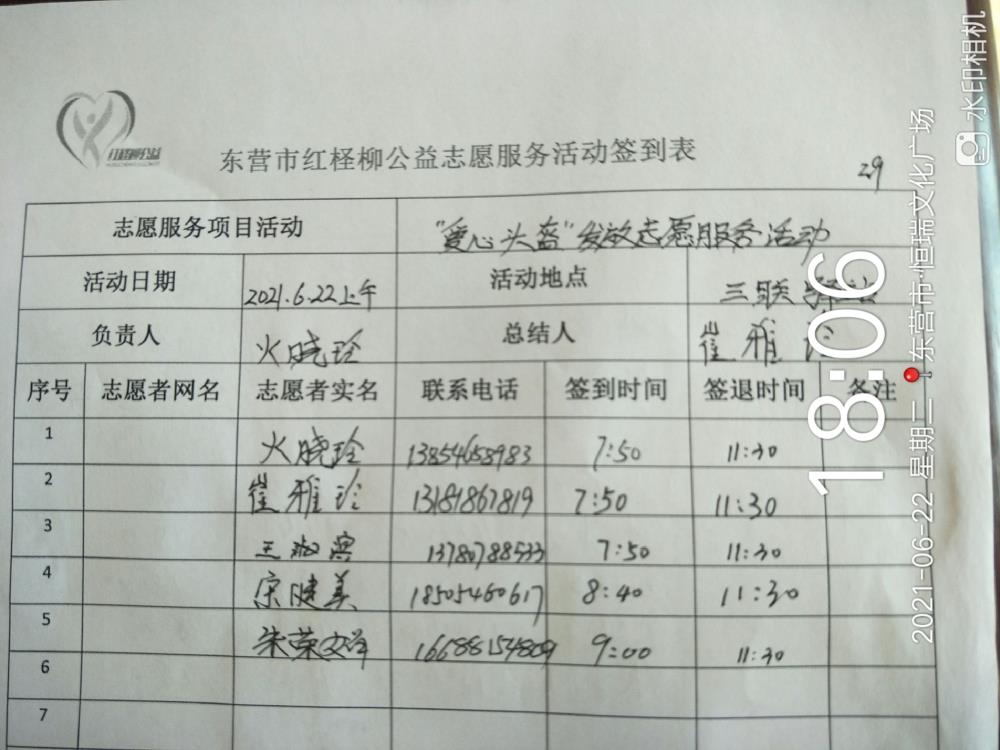 红柽柳公益
东营市红柽柳公益志愿服务活动签到表
29
志愿服务项目活动 "爱心头盔"发放志愿服务活动
活动日期 2021.6.22上午 活动地点 三联驿站
负责人 火晓玲 总结人 崔雅玲
序号 志愿者网名 志愿者实名 联系电话 签到时间 签退时间 备注
1 火晓玲 13854658983 7:50 11:30
2 崔雅玲 13181867819 7:50 11:30
3 王淑滨 13780788533 7:50 11:30
4 宋健美 18505460617 8:40 11:30
5 朱荣 16688154809 9:00 11:30
6
7
水印相机
18:06
2021-06-22 星期二 东营市·恒瑞文化广场